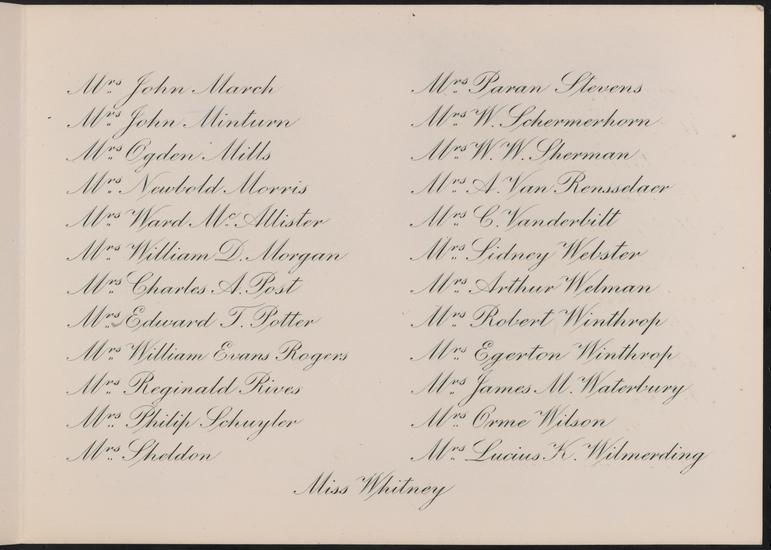 Mrs. John March
Mrs. John Minturn
Mrs. Ogden Mills
Mrs. Newbold Morris
Mrs. Ward McAllister
Mrs. William D. Morgan
Mrs. Charles A. Post
Mrs. Edward T. Potter
Mrs. William Evans Rogers
Mrs. Reginald Rives
Mrs. Philip Schuyler
Mrs. Sheldon
Mrs. Paran Stevens
Mrs. W. Schermerhorn
Mrs. W. W. Sherman
Mrs. A. Van Rensselaer
Mrs. C. Vanderbilt
Mrs. Sidney Webster
Mrs. Arthur Welman
Mrs. Robert Winthrop
Mrs. Egerton Winthrop
Mrs. James M. Waterbury
Mrs. Orme Wilson
Mrs. Lucius K. Wilmerding
Miss Whitney